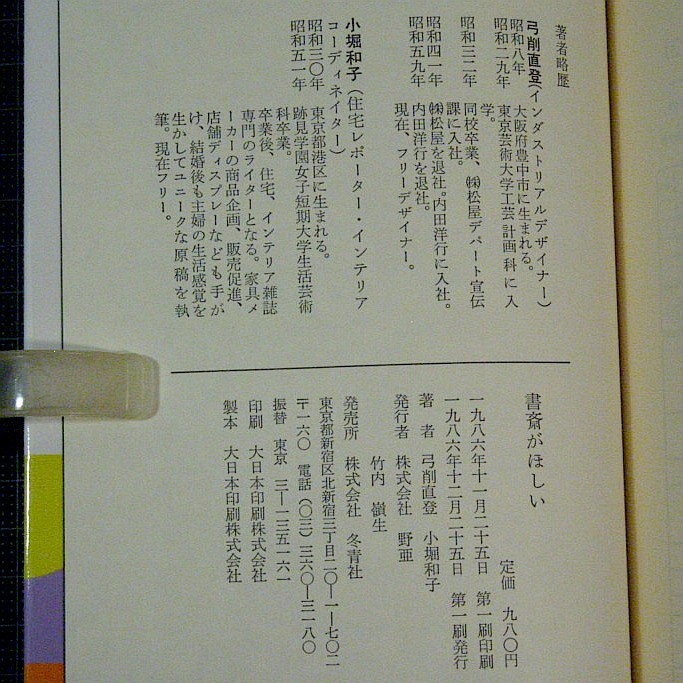 著者略歴
弓削直登(インダストリアルデザイナー)
昭和八年　大阪府豊中市に生まれる。
昭和二九年　東京芸術大学工芸計画科に入
学。
昭和三二年　同校卒業、㈱松屋デパート宣伝
課に入社。
昭和四一年　㈱松屋を退社。内田洋行に入社。
昭和五九年　内田洋行を退社。
現在、フリーデザイナー。
小堀和子(住宅レポーター・インテリア
コーディネイター)
昭和三〇年　東京都港区に生まれる。
昭和五一年　跡見学園女子短期大学生活芸術
科卒業。
卒業後、住宅、インテリア雑誌
専門のライターとなる。家具メ
ーカーの商品企画、販売促進、
店舗ディスプレーなども手が
け、結婚後も主婦の生活感覚を
生かしてユニークな原稿を執
筆。現在フリー。
書斎がほしい
定価　九八〇円
一九八六年十一月二十五日　第一刷印刷
一九八六年十二月二十五日　第一刷発行
著　者　弓削直登　小堀和子
発行者　株式会社　野亜
竹内　嶺生
発売所　株式会社　冬青社
東京都新宿区北新宿三丁目二〇―一―七〇二
〒一六〇　電話(〇三)三六〇―三一八〇
振替　東京　三―一三五一六一
印刷　大日本印刷株式会社
製本　大日本印刷株式会社